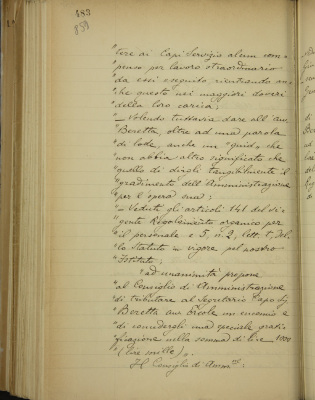 "tere ai Capi Servizio alcun com-
"penso per lavoro straordinario
"da essi eseguito, rientrando an-
"che questo nei maggiori doveri
"della loro carica;
"– Volendo tuttavia dare all'
"Beretta, oltre ad una parola
"di lode, anche un "quid" che
"non abbia altro significato che
"quello di dirgli tangibilmente il
"gradimento dell'Amministrazione
"per l'opera sua;
"– Veduti gli articoli 141 del vi-
"gente Regolamento organico per
"il personale e 5, n. 2, lett. del-
"lo Statuto in vigore pel nostro
"Istituto;
"ad unanimità propone
"al Consiglio di Amministrazione
"di tributare al Segretario Capo
"Beretta un encomio e
"di concedergli una speciale grati-
"ficazione nella somma di lire 1000
"(lire mille)".
Il Consiglio di Amm.ne: